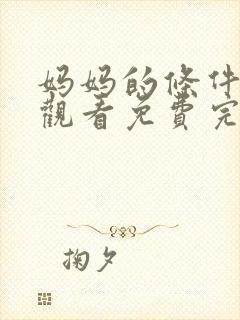 妈妈的條件
觀看免費完
掬夕